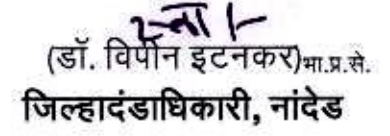 स्वा/-
(डॉ. विपीन इटनकर)भा.प्र.से.
जिल्हादंडाधिकारी, नांदेड